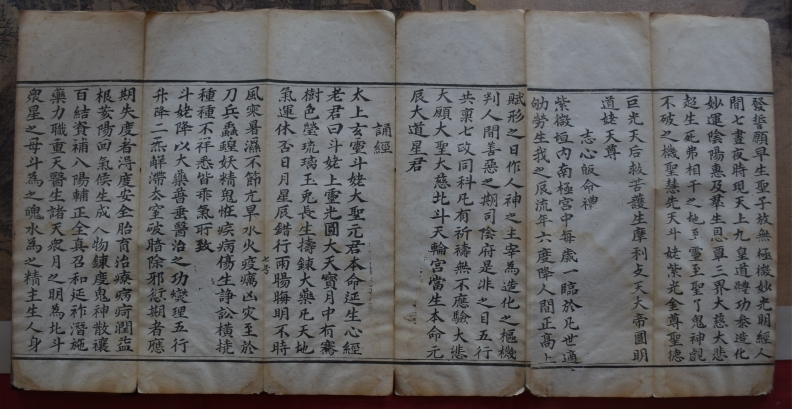 發誓願早生聖子放無極微妙光明經人
間七晝夜時現天上九皇道體功泰造化
妙運陰陽惠及羣生恩覃三界大慈大悲
起生死弗相干之地至靈至聖了鬼神覷
不破之機聖慧先天斗姥紫光金尊聖德
巨光天后救苦護生摩利支天大帝圓明
道姥天尊
志心皈命禮
紫微垣內南極宮中每歲一臨於凡世適
劬勞生我之辰流年六度降人間正髙上
賦形之日作人神之主宰為造化之樞機
判人間善惡之期司陰府是非之目五行
共稟七政同科凡有祈禱無不應驗大悲
大願大聖大慈北斗天輪宮當生本命元
辰大道星君
誦經
太上玄靈斗姥大聖元君本命延生心經
老君曰斗姥上靈光圓大天寶月中有騫
樹色瑩琉璃玉兎長生擣鍊大藥凡天地
氣運休否日月星辰錯行雨腸晦明不時
風寒暑濕不節亢旱水火疫癘凶灾至於
七号
刀兵蟲蝗妖精鬼恠疾病傷生諍訟橫撓
種種不祥悉皆乖氣所致
斗姥降以大藥普垂醫治之功燮理五行
升降二炁解滯去窒破暗除邪愆期者應
期失度者得度安全胎育治療病疴潤益
根荄陽回氣候生成人物鍊度鬼神散禳
百結資補八陽輔正全真召和延祚潛施
藥力職重天醫生諸天衆月之明為北斗
衆星之母斗為之魄水為之精主生人身